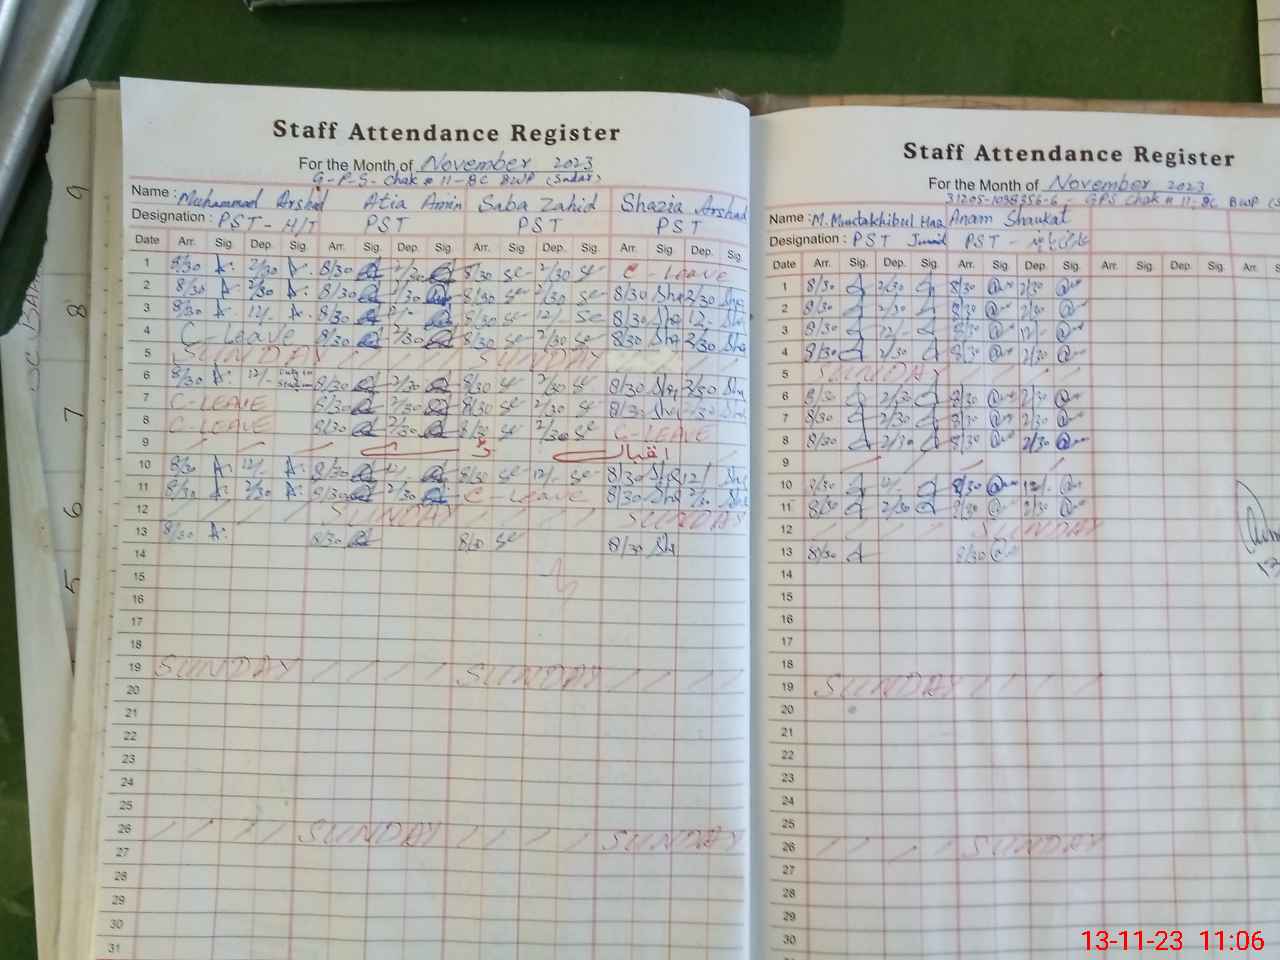 Staff Attendance Register
For the Month of November 2023
G-P-S- Chak # 11-BC BWP (Sadar)
Name: Muhammad Arshad Atia Amin Saba Zahid Shazia Arshad
Designation: PST - H/T PST PST PST
Date Arr. Sig. Dep. Sig. Arr. Sig. Dep. Sig. Arr. Sig. Dep. Sig. Arr. Sig. Dep. Sig.
1 8/30 2/30 8/30 2/30 8/30 2/30 C-Leave
2 8/30 2/30 8/30 2/30 8/30 2/30 8/30 Sha 2/30 Sha
3 8/30 12/- 8/30 8/30 12/- 8/30 Sha 12/- Sha
4 C-Leave 8/30 2/30 8/30 2/30 8/30 Sha 2/30 Sha
5 SUNDAY SUNDAY
6 8/30 12/- 8/30 2/30 8/30 2/30 8/30 Sha 2/30 Sha
7 C-LEAVE 8/30 2/30 8/30 2/30 8/30 Sha 2/30 Sha
8 C-LEAVE 8/30 2/30 8/30 2/30 C-LEAVE
9 اقبال ڈے
10 8/30 12/- 8/30 12/- 8/30 12/- 8/30 Sha 12/- Sha
11 8/30 2/30 8/30 2/30 C-Leave 8/30 Sha 2/30 Sha
12 SUNDAY SUNDAY
13 8/30 8/30 8/30 8/30 Sha
14
15
16
17
18
19 SUNDAY SUNDAY
20
21
22
23
24
25
26 SUNDAY SUNDAY
27
28
29
30
31
Staff Attendance Register
For the Month of November, 2023
31205-1098356-6 - GPS Chak # 11-BC BWP
Name: M. Muntakhibul Haq Anam Shaukat
Designation: PST PST -
Date Arr. Sig. Dep. Sig. Arr. Sig. Dep. Sig. Arr. Sig. Dep. Sig. Arr. Si
1 8/30 2/30 8/30 2/30
2 8/30 2/30 8/30 2/30
3 8/30 12/- 8/30 12/-
4 8/30 2/30 8/30 2/30
5 SUNDAY
6 8/30 2/30 8/30 2/30
7 8/30 2/30 8/30 2/30
8 8/30 2/30 8/30 2/30
9
10 8/30 12/- 8/30 12/-
11 8/30 2/30 8/30 2/30
12 SUNDAY
13 8/30 8/30
14
15
16
17
18
19 SUNDAY
20
21
22
23
24
25
26 SUNDAY
27
28
29
30
13-11-23 11:06
9
8
7
6
5